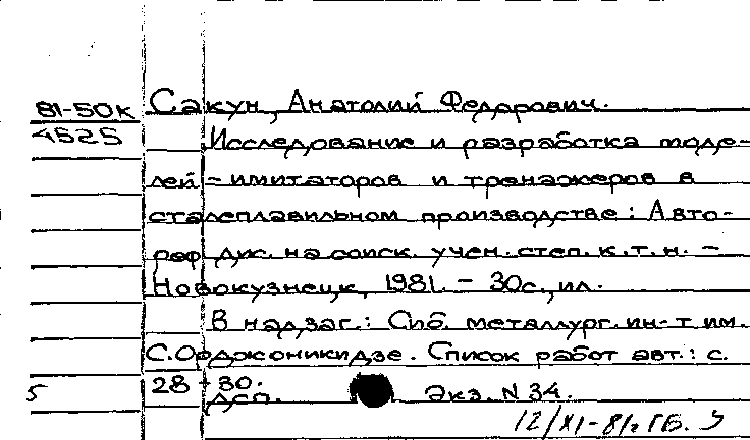 81-50к Сакун, Анатолий Федорович.
4525 Исследование и разработка моде-
лей-имитаторов и тренажеров в
сталеплавильном производстве: Авто-
реф дис. на соиск. учен. степ. к.т.н. –
Новокузнецк, 1981. – 30с., ил.
В надзаг.: Сиб. металлург. ин-т им.
С. Орджоникидзе. Список работ авт.: с.
28-30.
5 ДСП. Экз. N 34.
12/XI-81г ГБ.